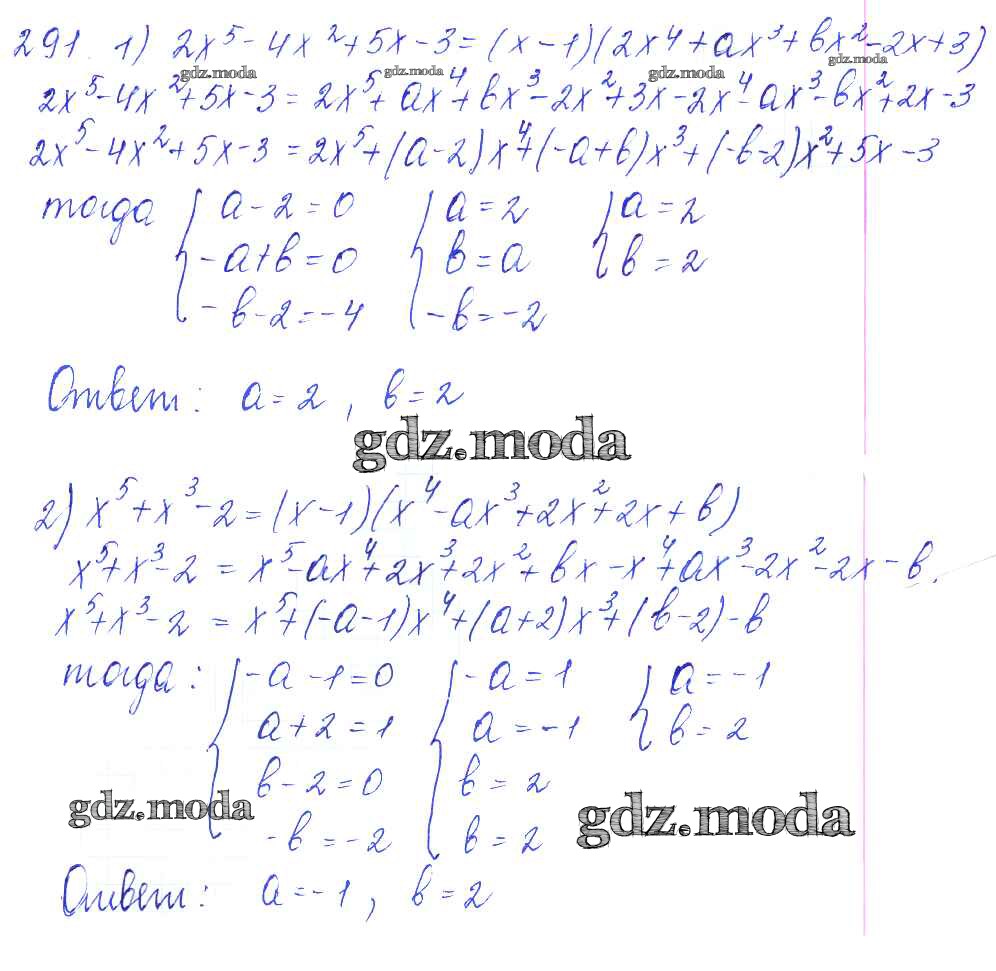 291 1) 2x⁵ - 4x² + 5x - 3 = (x - 1)(2x⁴ + ax³ + bx² - 2x + 3)
gdz.moda gdz.moda gdz.moda gdz.moda
2x⁵ - 4x² + 5x - 3 = 2x⁵ + ax⁴ + bx³ - 2x² + 3x - 2x⁴ - ax³ - bx² + 2x - 3
2x⁵ - 4x² + 5x - 3 = 2x⁵ + (a - 2)x⁴ + (-a + b)x³ + (-b - 2)x² + 5x - 3
тогда { a - 2 = 0 { a = 2 { a = 2
-a + b = 0 b = a b = 2
-b - 2 = -4 -b = -2
Ответ: a = 2, b = 2
gdz.moda
2) x⁵ + x³ - 2 = (x - 1)(x⁴ - ax³ + 2x² + 2x + b)
x⁵ + x³ - 2 = x⁵ - ax⁴ + 2x³ + 2x² + bx - x⁴ + ax³ - 2x² - 2x - b.
x⁵ + x³ - 2 = x⁵ + (-a - 1)x⁴ + (a + 2)x³ + (b - 2) - b
тогда: { -a - 1 = 0 { -a = 1 { a = -1
a + 2 = 1 a = -1 b = 2
b - 2 = 0 b = 2
gdz.moda gdz.moda
-b = -2 b = 2
Ответ: a = -1, b = 2